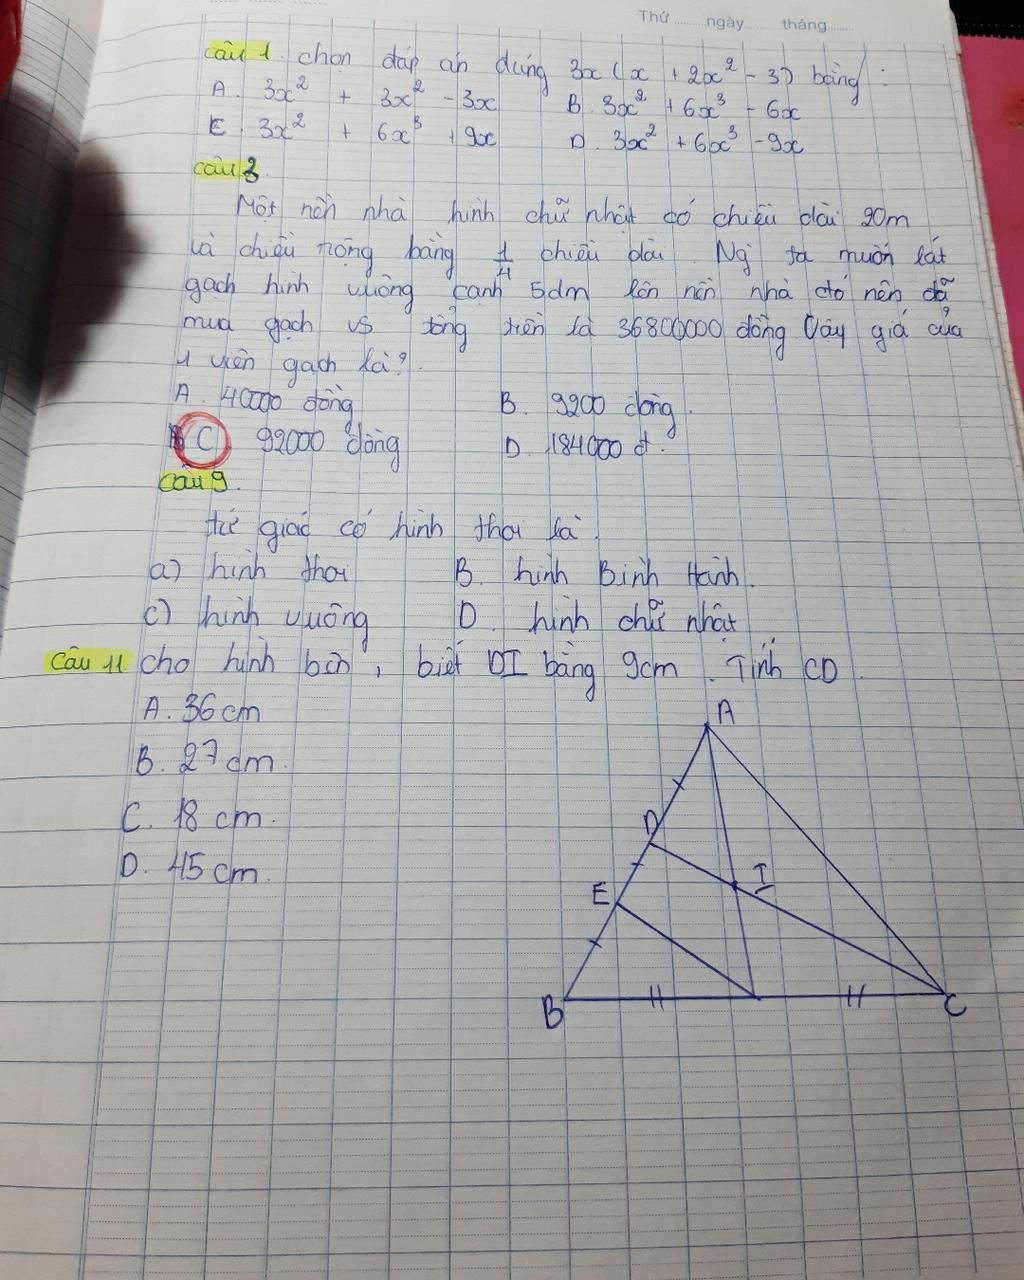 Thứ ........ ngày ........ tháng ........
câu 1. chọn đáp án đúng 3x (x + 2x² - 3) bằng :
A. 3x² + 3x² - 3x B. 3x² + 6x³ - 6x
C. 3x² + 6x³ + 9x D. 3x² + 6x³ - 9x
câu 3.
Một nền nhà hình chữ nhật có chiều dài 20m
và chiều rộng bằng 1/4 chiều dài. Ng` ta muốn lát
gạch hình vuông cạnh 5dm lên nền nhà đó nên đã
mua gạch vs tổng tiền là 36800000 đồng Vậy giá của
1 viên gạch là?
A. 40000 đồng B. 9200 đồng.
C. 92000 đồng D. 184000 đ.
câu 9.
tứ giác có hình thoi là
a) hình thoi B. hình Bình Hành.
c) hình vuông D. hình chữ nhật
Câu 11 cho hình bên, biết DI bằng 9cm. Tính CD
A. 36 cm
B. 27 cm.
C. 18 cm.
D. 45 cm.
A
D
I
E
B
C